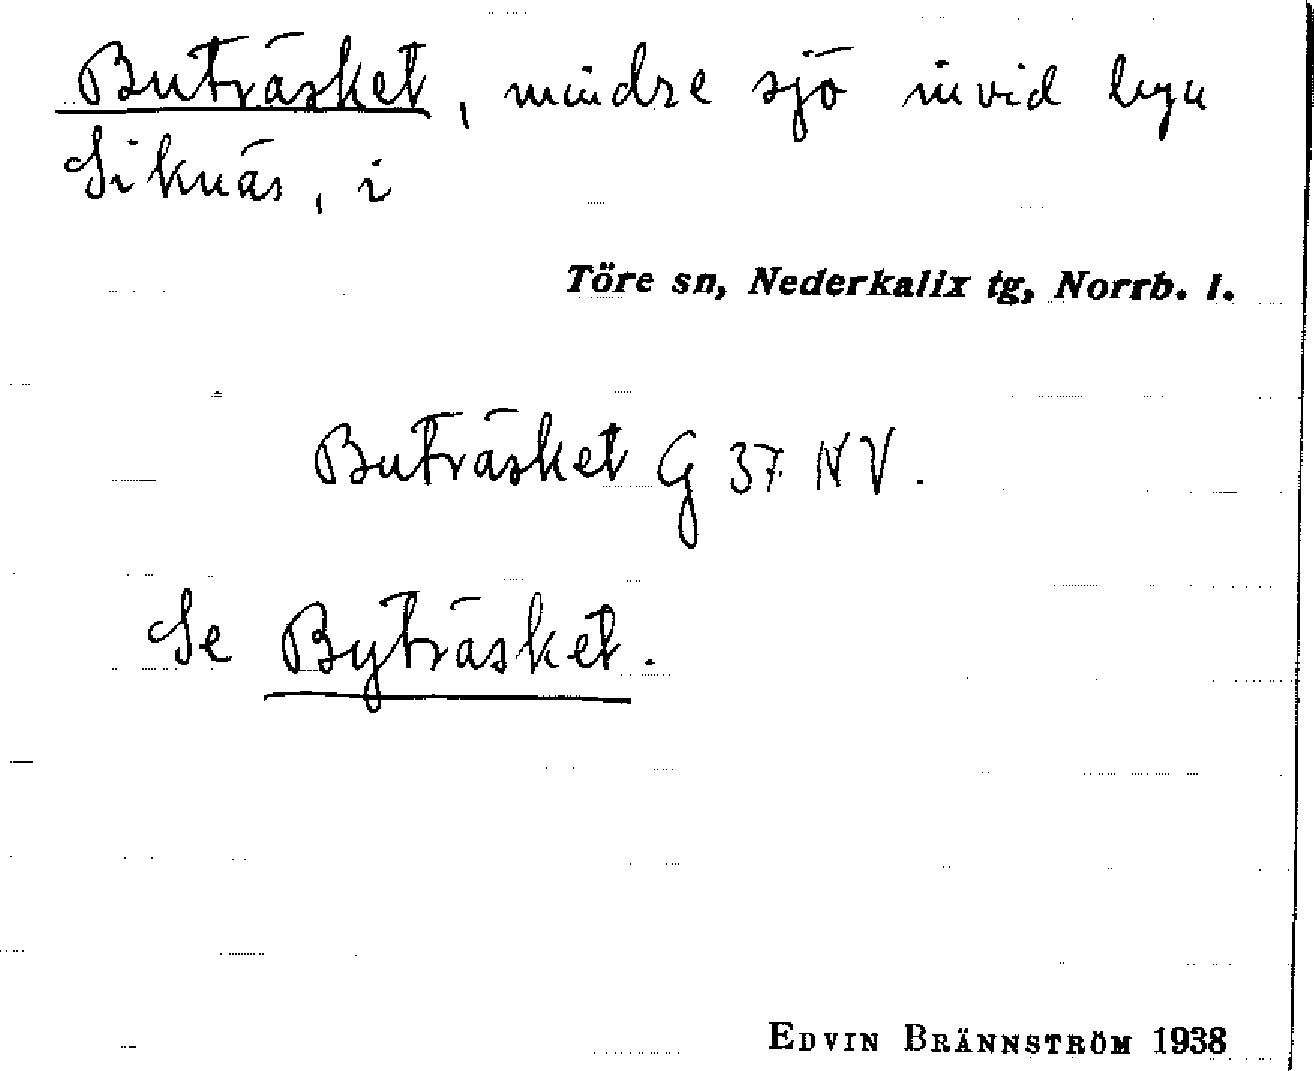 Buträsket, mindre sjö invid byn
Siknäs, i
Töre sn, Nederkalix tg, Norrb. l.
Buträsket G 37 NV.
Se Byträsket.
EDVIN BRÄNNSTRÖM 1938